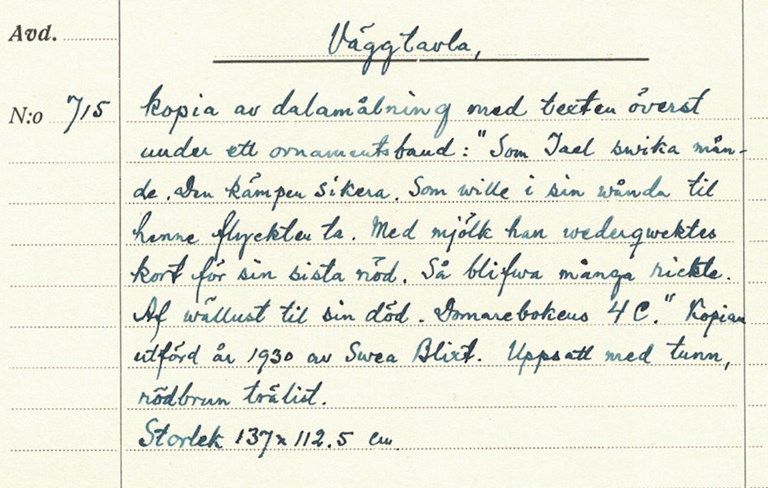 Avd.
Väggtavla,
N:o 715
kopia av dalamålning med texten överst
under ett ornamentsband: "Som Jael swika mån-
de. Den kämpen Sisera. Som wille i sin wånda til
henne flyckten ta. Med mjölk han wederqwektes
kort för sin sista nöd. Så blifwa många rickte.
Af wällust til sin död. Domarebokens 4 C." Kopian
utförd år 1930 av Swea Blixt. Uppsatt med tunn,
rödbrun trälist.
Storlek 137x112.5 cm.